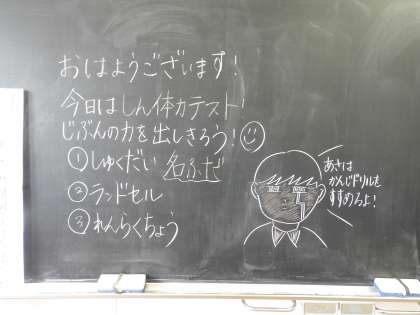 おはようございます!
今日はしん体力テスト!
じぶんの力を出しきろう!
①しゅくだい 名ふだ
②ランドセル
③れんらくちょう
あさは
かんじドリルを
すすめろよ!